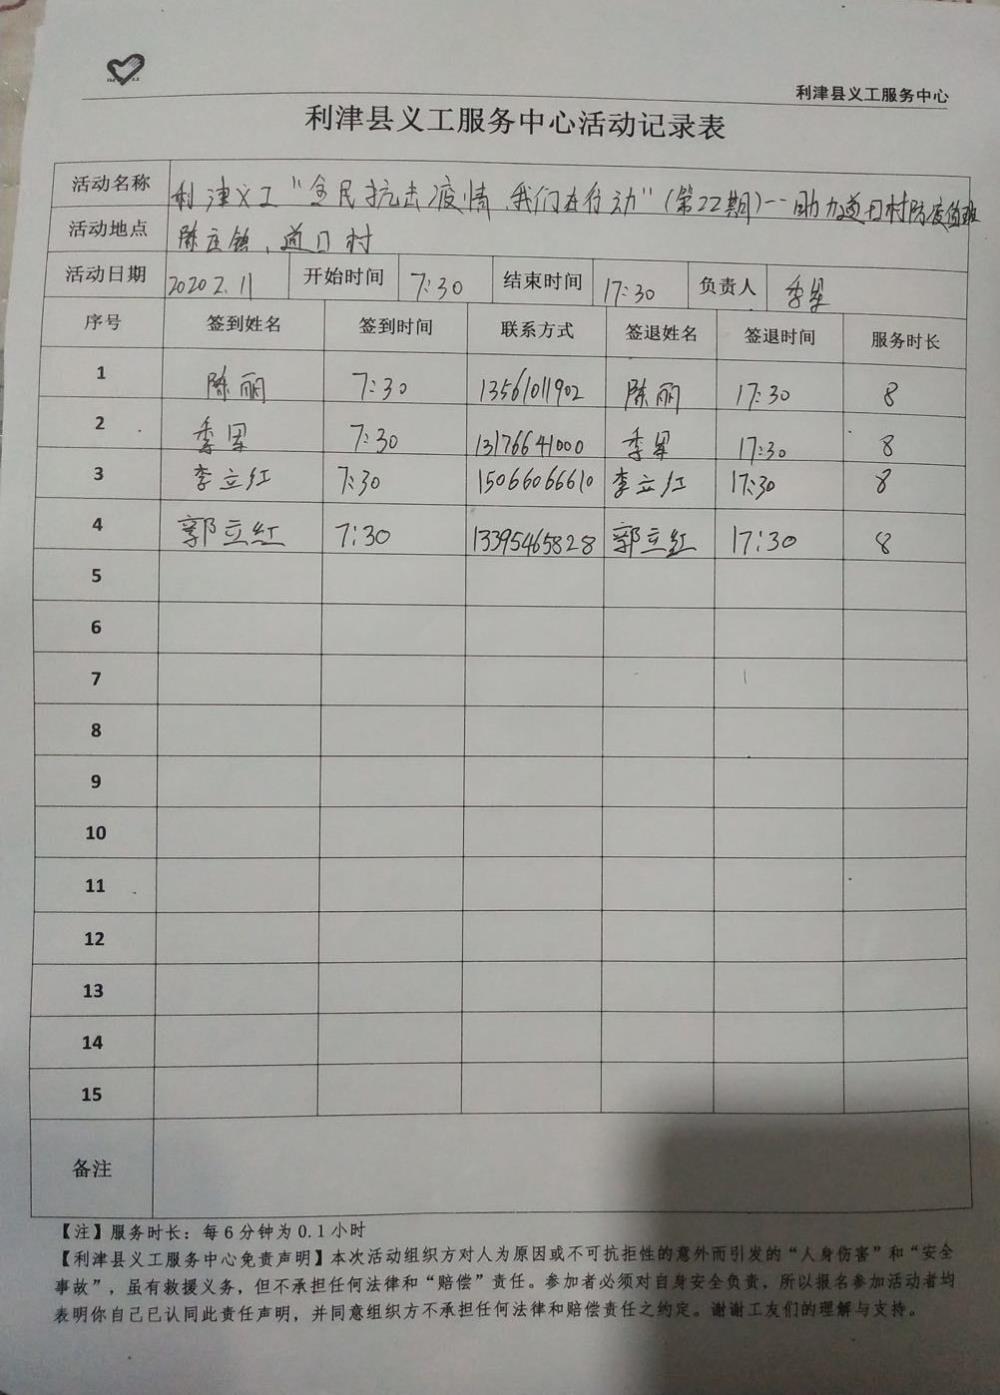 利津县义工服务中心
利津县义工服务中心活动记录表
活动名称 利津义工“全民抗击疫情、我们在行动”(第22期)--助力道口村防疫值班
活动地点 陈庄镇、道口村
活动日期 2020 2.11 开始时间 7:30 结束时间 17:30 负责人 季星
序号 签到姓名 签到时间 联系方式 签退姓名 签退时间 服务时长
1 陈丽 7:30 13561011902 陈丽 17:30 8
2 季星 7:30 13176641000 季星 17:30 8
3 李立红 7:30 15066066610 李立红 17:30 8
4 郭立红 7:30 13395465828 郭立红 17:30 8
5
6
7
8
9
10
11
12
13
14
15
备注
【注】服务时长：每6分钟为0.1小时
【利津县义工服务中心免责声明】本次活动组织方对人为原因或不可抗拒性的意外而引发的“人身伤害”和“安全
事故”，虽有救援义务，但不承担任何法律和“赔偿”责任。参加者必须对自身安全负责，所以报名参加活动者均
表明你自己已认同此责任声明，并同意组织方不承担任何法律和赔偿责任之约定。谢谢工友们的理解与支持。